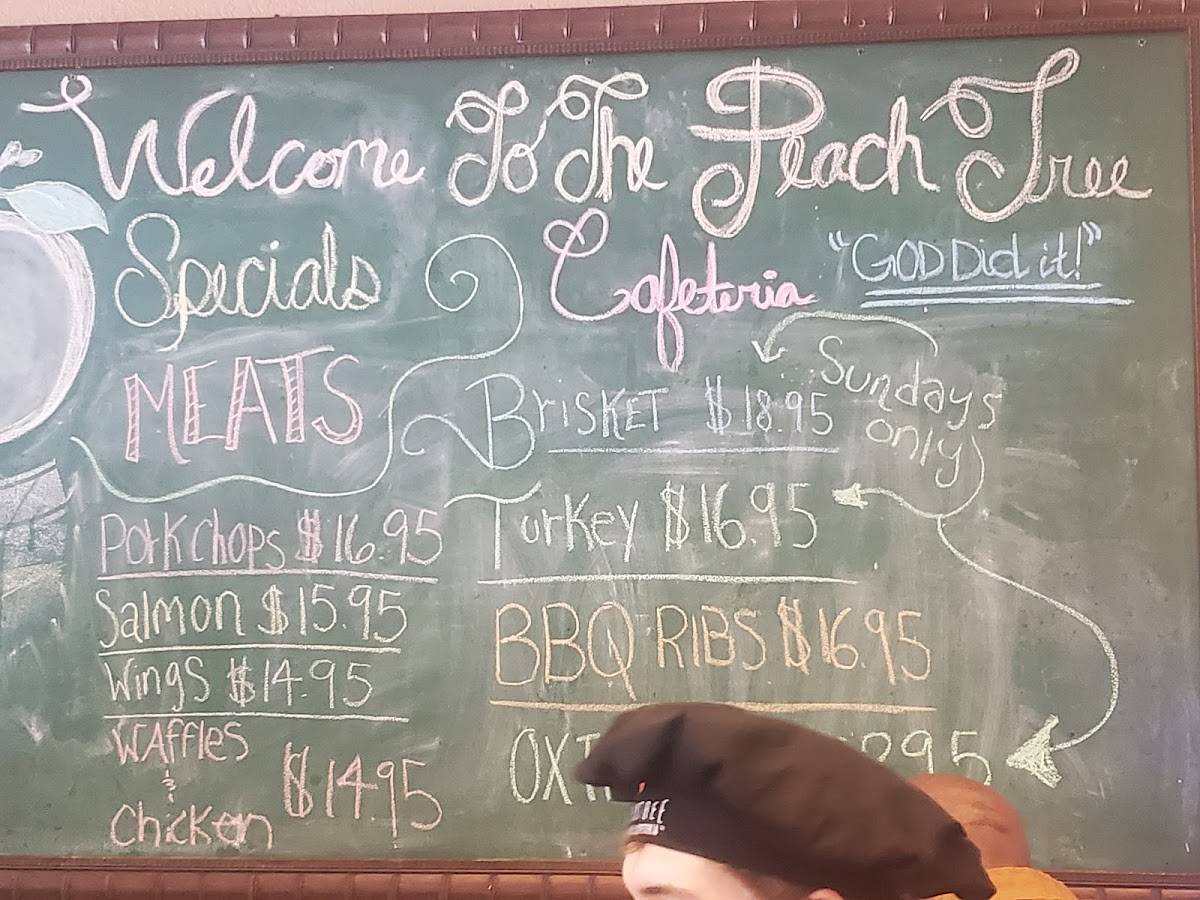 Welcome To The Peach Tree
Cafeteria
"GOD Did it!"
Specials
MEATS
Porkchops $16.95
Salmon $15.95
Wings $14.95
WAffles
&
Chicken $14.95
BrISKET $18.95
Sundays
only
Turkey $16.95
BBQ RIBS $16.95